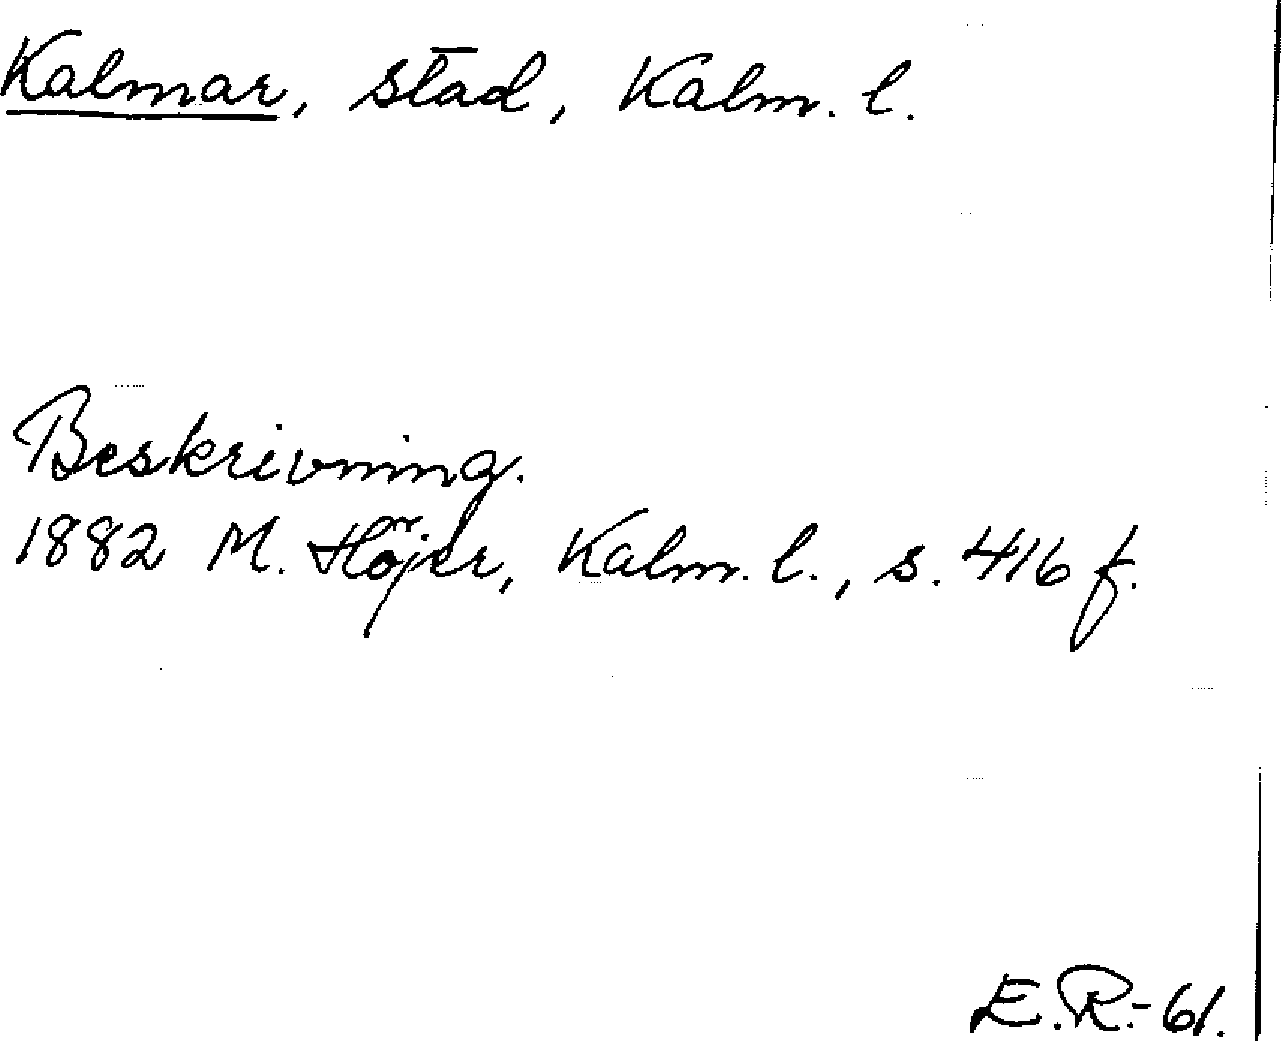 Kalmar, stad, Kalm. l.
Beskrivning.
1882 M. Höjer, Kalm. l., s. 416 f.
E.R.-61.